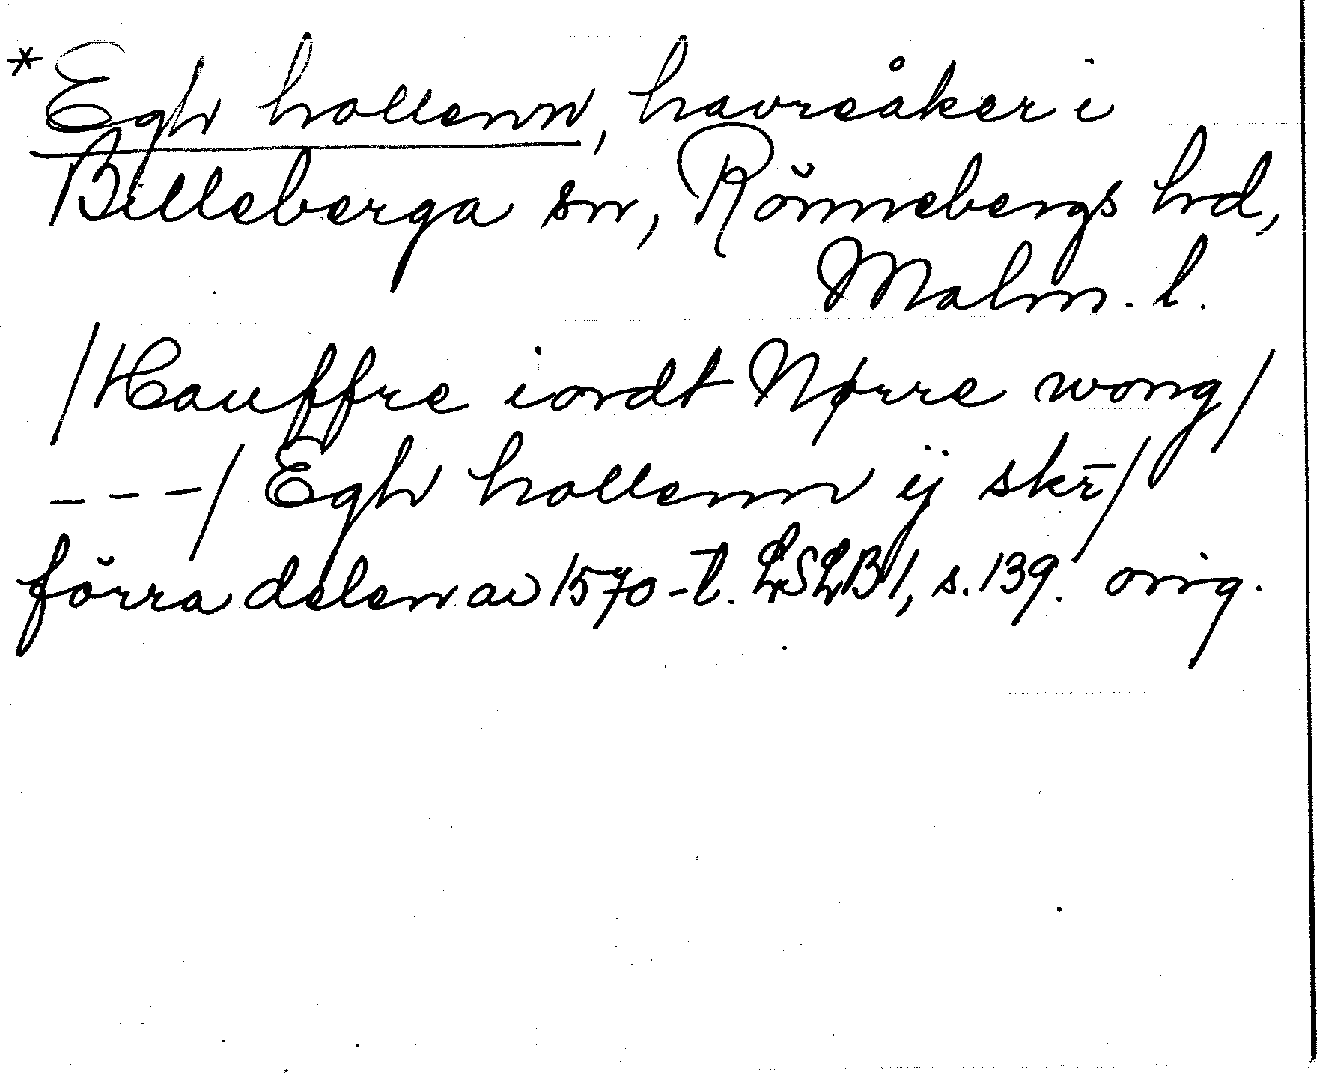 *Egh hollenn, havreåker i
Billeberga sn, Rönnebergs hd,
Malm. l.
/Hauffre iordt Nørre wong/
---/ Egh hollenn ij skr̄/
förra delen av 1570-t. LSLB 1, s. 139. orig.